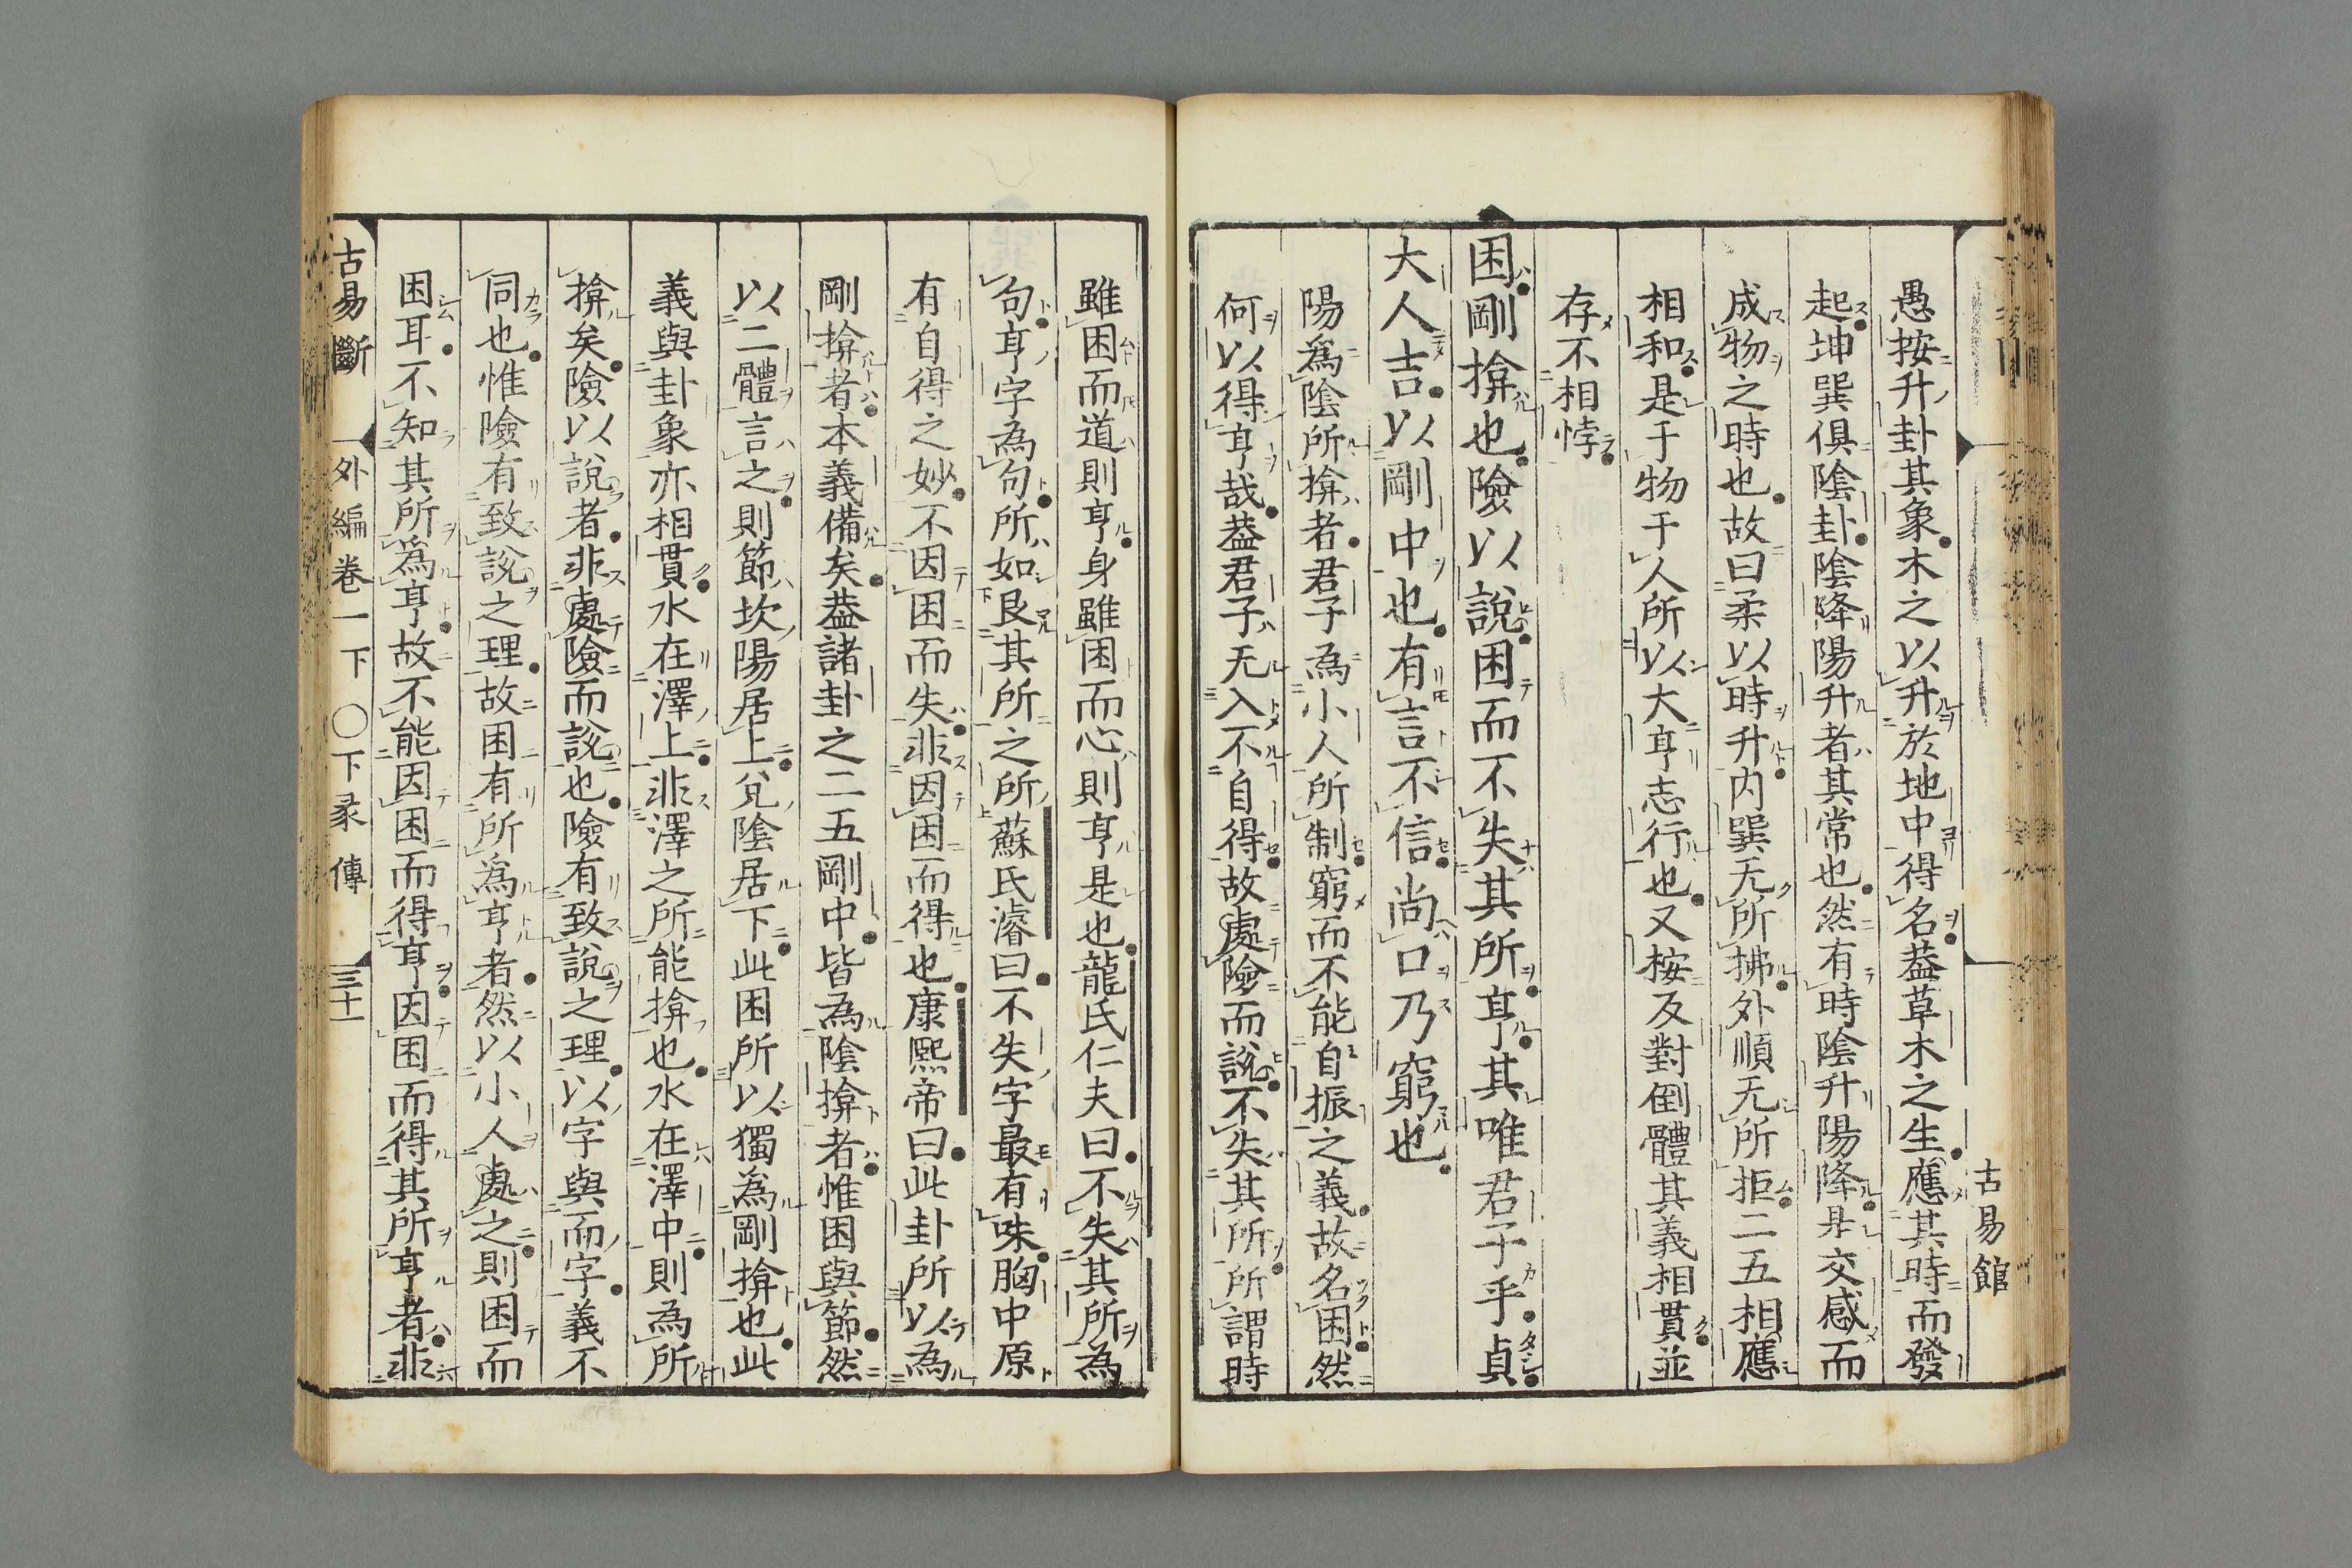 愚按升卦其象木之以升於地中得名葢草木之生應其時而發
起坤巽俱陰卦陰降陽升者其常也然有時陰升陽降是交感而
成物之時也故曰柔以時升内巽无所拂外順无所拒二五相應
相和是于物于人所以大亨志行也又按反對倒體其義相貫並
存不相悖
困剛揜也險以說困而不失其所亨其唯君子乎貞
大人吉以剛中也有言不信尚口乃窮也
陽爲陰所揜者君子為小人所制窮而不能自振之義故名困然
何以得亨哉葢君子无入不自得故處險而說不失其所所謂時
古易館
雖困而道則亨身雖困而心則亨是也龍氏仁夫曰不失其所為
句亨字為句所如艮其所之所蘇氏濬曰不失字最有味胸中原
有自得之妙不因困而失非因困而得也康熙帝曰此卦所以為
剛揜者本義備矣葢諸卦之二五剛中皆為陰揜者惟困與節然
以二體言之則節坎陽居上兌陰居下此困所以獨為剛揜也此
義與卦象亦相貫水在澤上非澤之所能揜也水在澤中則為所
揜矣險以說者非處險而說也險有致說之理以字與而字義不
同也惟險有致說之理故困有所為亨者然以小人處之則困而
困耳不知其所爲亨故不能因困而得亨因困而得其所亨者非
古易斷 外編卷一下 〇下彖傳 三十一